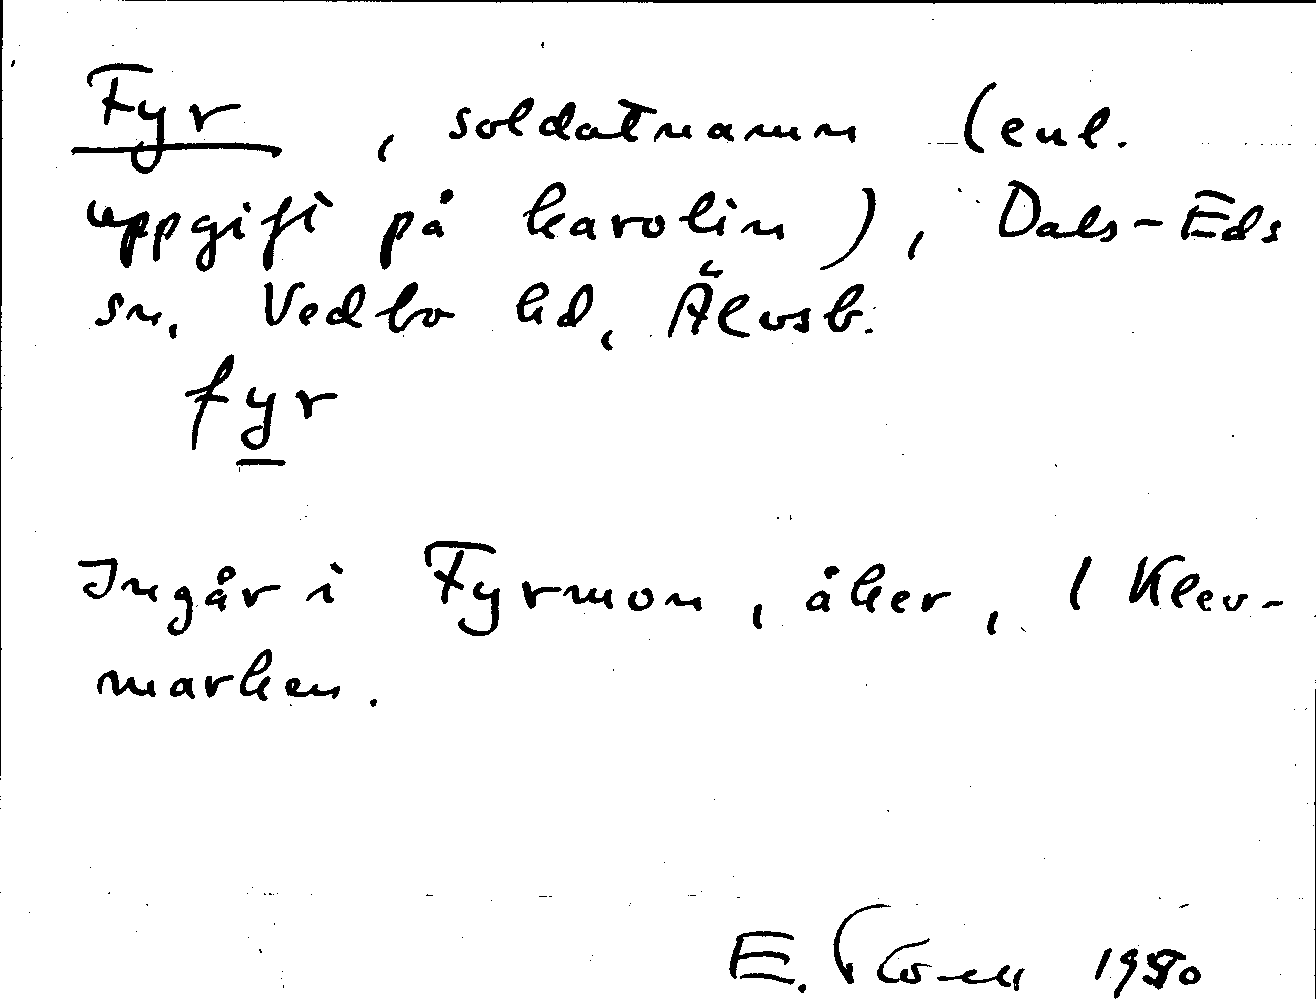 Fyr, soldatnamn (enl.
uppgift på karolin), Dals-Eds
sn, Vedbo hd, Älvsb.
fyr
Ingår i Fyrmon, åker, 1 Klev-
marken.
E. 1980